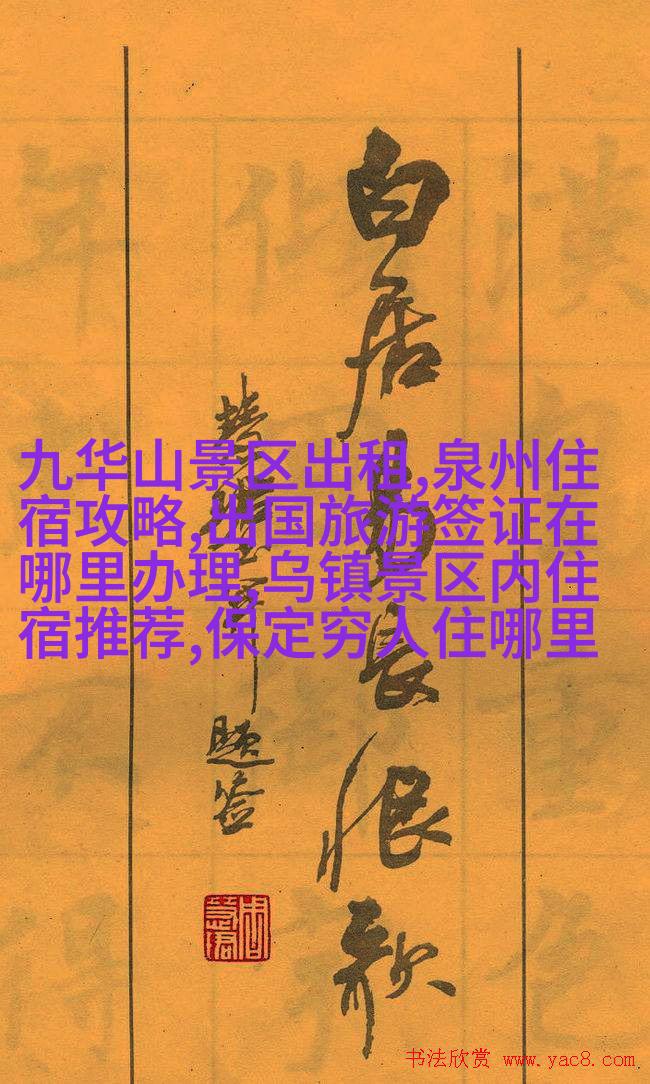 白居易長恨歌
題签
九华山景区出租,泉州住
宿攻略,出国旅游签证在
哪里办理,乌镇景区内住
宿推荐,保定穷人住哪里
书法欣赏 www.yac8.com